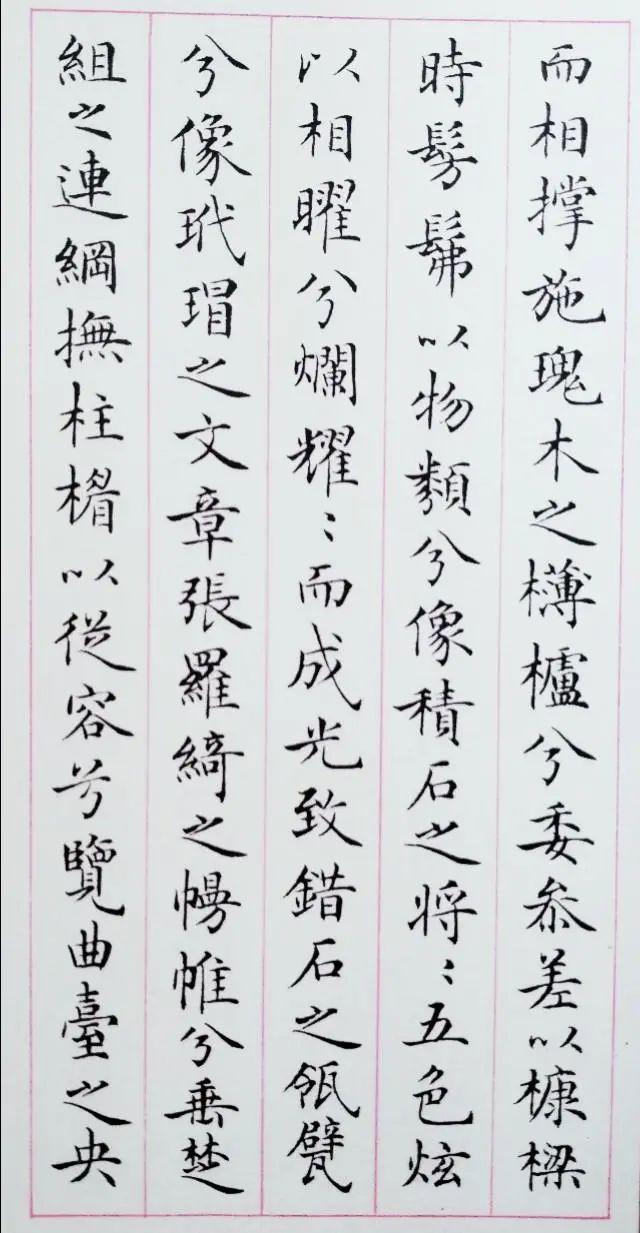 而相撑施瑰木之欂櫨兮委叅差以槺樑
時髣髴以物類兮像積石之将〻五色炫
以相曜兮爛耀〻而成光致錯石之瓴甓
兮像玳瑁之文章張羅綺之幔帷兮垂楚
組之連綱撫柱楣以從容兮覽曲臺之央